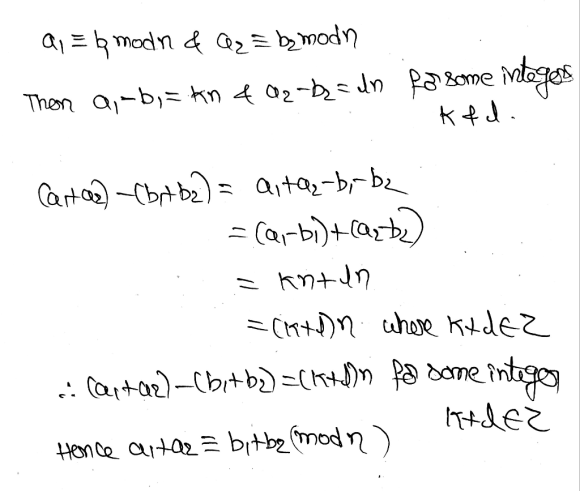 a₁ ≡ b₁ mod n & a₂ ≡ b₂ mod n
Then a₁-b₁ = kn & a₂-b₂ = ln for some integers
k & l.
(a₁+a₂)-(b₁+b₂) = a₁+a₂-b₁-b₂
= (a₁-b₁)+(a₂-b₂)
= kn+ln
= (k+l)n where k+l∈Z
∴ (a₁+a₂)-(b₁+b₂) = (k+l)n for some integer
k+l∈Z
Hence a₁+a₂ ≡ b₁+b₂ (mod n)